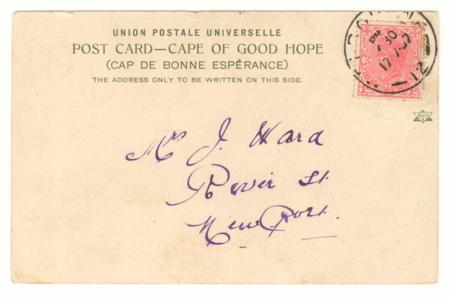 UNION POSTALE UNIVERSELLE
POST CARD—CAPE OF GOOD HOPE
(CAP DE BONNE ESPÉRANCE)
THE ADDRESS ONLY TO BE WRITTEN ON THIS SIDE.
Mrs J. Ward
River St.
Newport.